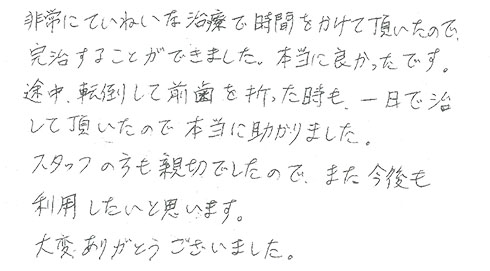 非常にていねいな治療で時間をかけて頂いたので、
完治することができました。本当に良かったです。
途中、転倒して前歯を折った時も、一日で治
して頂いたので本当に助かりました。
スタッフの方も親切でしたので、また今後も
利用したいと思います。
大変、ありがとうございました。